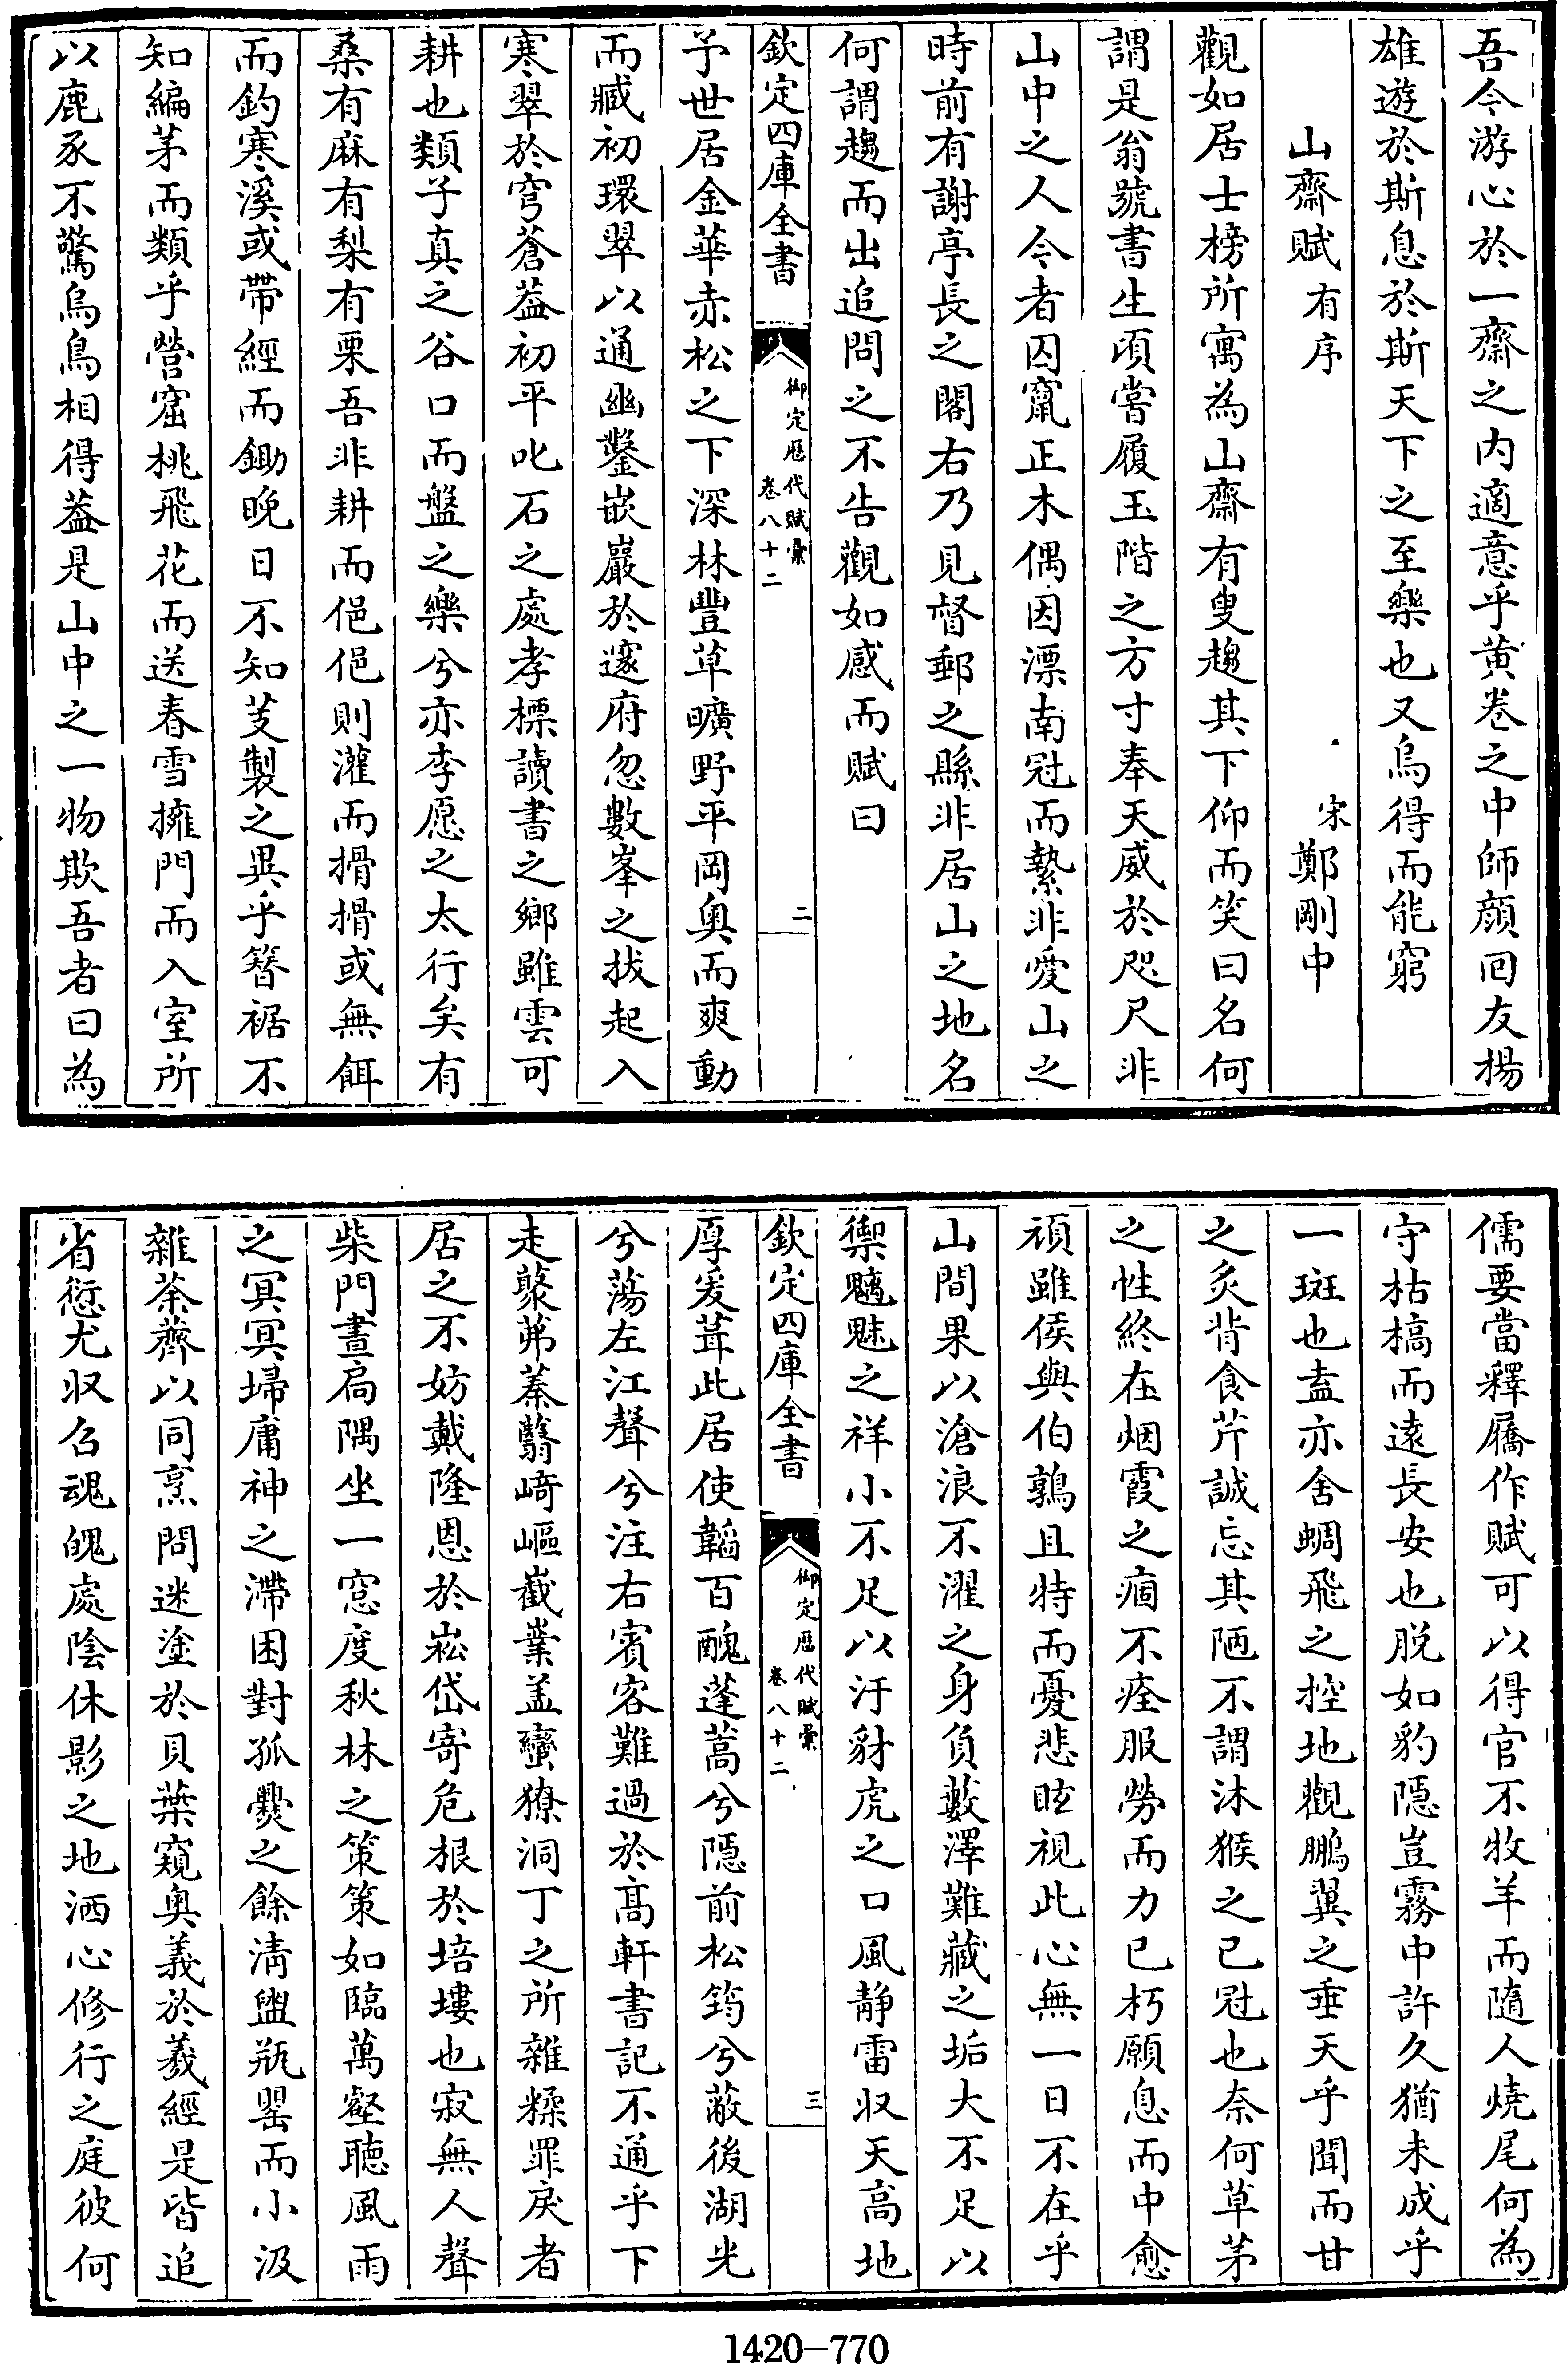 吾今游心於一齋之内適意乎黄卷之中師顔回友揚
雄遊於斯息於斯天下之至樂也又烏得而能窮
山齋賦有序 宋鄭剛中
觀如居士榜所寓為山齋有叟趨其下仰而笑曰名何
謂是翁號書生頃嘗履玉階之方寸奉天威於咫尺非
山中之人今者囚竄正木偶因漂南冠而縶非愛山之
時前有謝亭長之閣右乃見督郵之縣非居山之地名
何謂趨而出追問之不告觀如感而賦曰
欽定四庫全書 御定歴代賦彙 卷八十二 二
予世居金華赤松之下深林豐草曠野平岡奥而爽動
而臧初環翠以通幽鑿嵌巖於邃府忽數峯之拔起入
寒翠於穹蒼葢初平叱石之處孝標讀書之鄉雖雲可
耕也類子真之谷口而盤之樂兮亦李愿之太行矣有
桑有麻有梨有栗吾非耕而俋俋則灌而搰搰或無餌
而釣寒溪或帶經而鋤晚日不知芰製之異乎簪裾不
知編茅而類乎營窟桃飛花而送春雪擁門而入室所
以鹿豕不驚烏鳥相得葢是山中之一物欺吾者曰為
儒要當釋屩作賦可以得官不牧羊而隨人燒尾何為
守枯槁而遠長安也脱如豹隠豈霧中許久猶未成乎
一斑也盍亦舍蜩飛之控地觀鵬翼之垂天乎聞而甘
之炙背食芹誠忘其陋不謂沐猴之已冠也奈何草茅
之性終在烟霞之痼不痊服勞而力已朽願息而中愈
頑雖侯與伯鶉且特而憂悲眩視此心無一日不在乎
山間果以滄浪不濯之身負藪澤難藏之垢大不足以
禦魑魅之祥小不足以汙豺虎之口風静雷収天高地
欽定四庫全書 御定歴代賦彙 卷八十二 三
厚爰葺此居使韜百醜蓬蒿兮隠前松筠兮蔽後湖光
兮蕩左江聲兮注右賓客難過於髙軒書記不通乎下
走藂茀蓁翳崎嶇嶻嶪盖蠻獠洞丁之所雜糅罪戾者
居之不妨戴隆恩於崧岱寄危根於培塿也寂無人聲
柴門晝扃隅坐一窓度秋林之策策如臨萬壑聽風雨
之冥冥埽庸神之滯困對孤爨之餘清盥瓶罌而小汲
雜荼薺以同烹問迷塗於貝葉窺奥義於羲經是皆追
省愆尤収召魂魄處陰休影之地洒心修行之庭彼何
1420-770